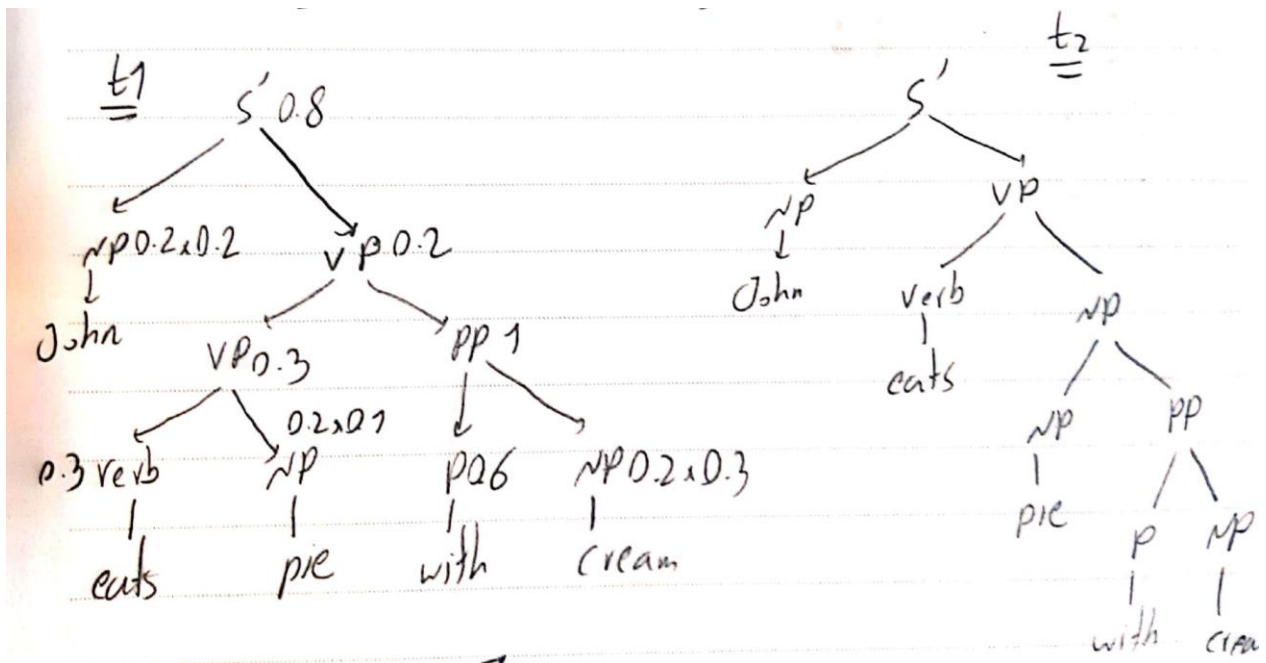 t1
S' 0.8
NP 0.2x0.2
VP 0.2
John
VP 0.3
PP 1
0.2x0.1
0.3 verb
NP
P 0.6
NP 0.2x0.3
eats
pie
with
cream
t2
S'
NP
VP
John
verb
NP
eats
NP
PP
pie
P
NP
with
crea